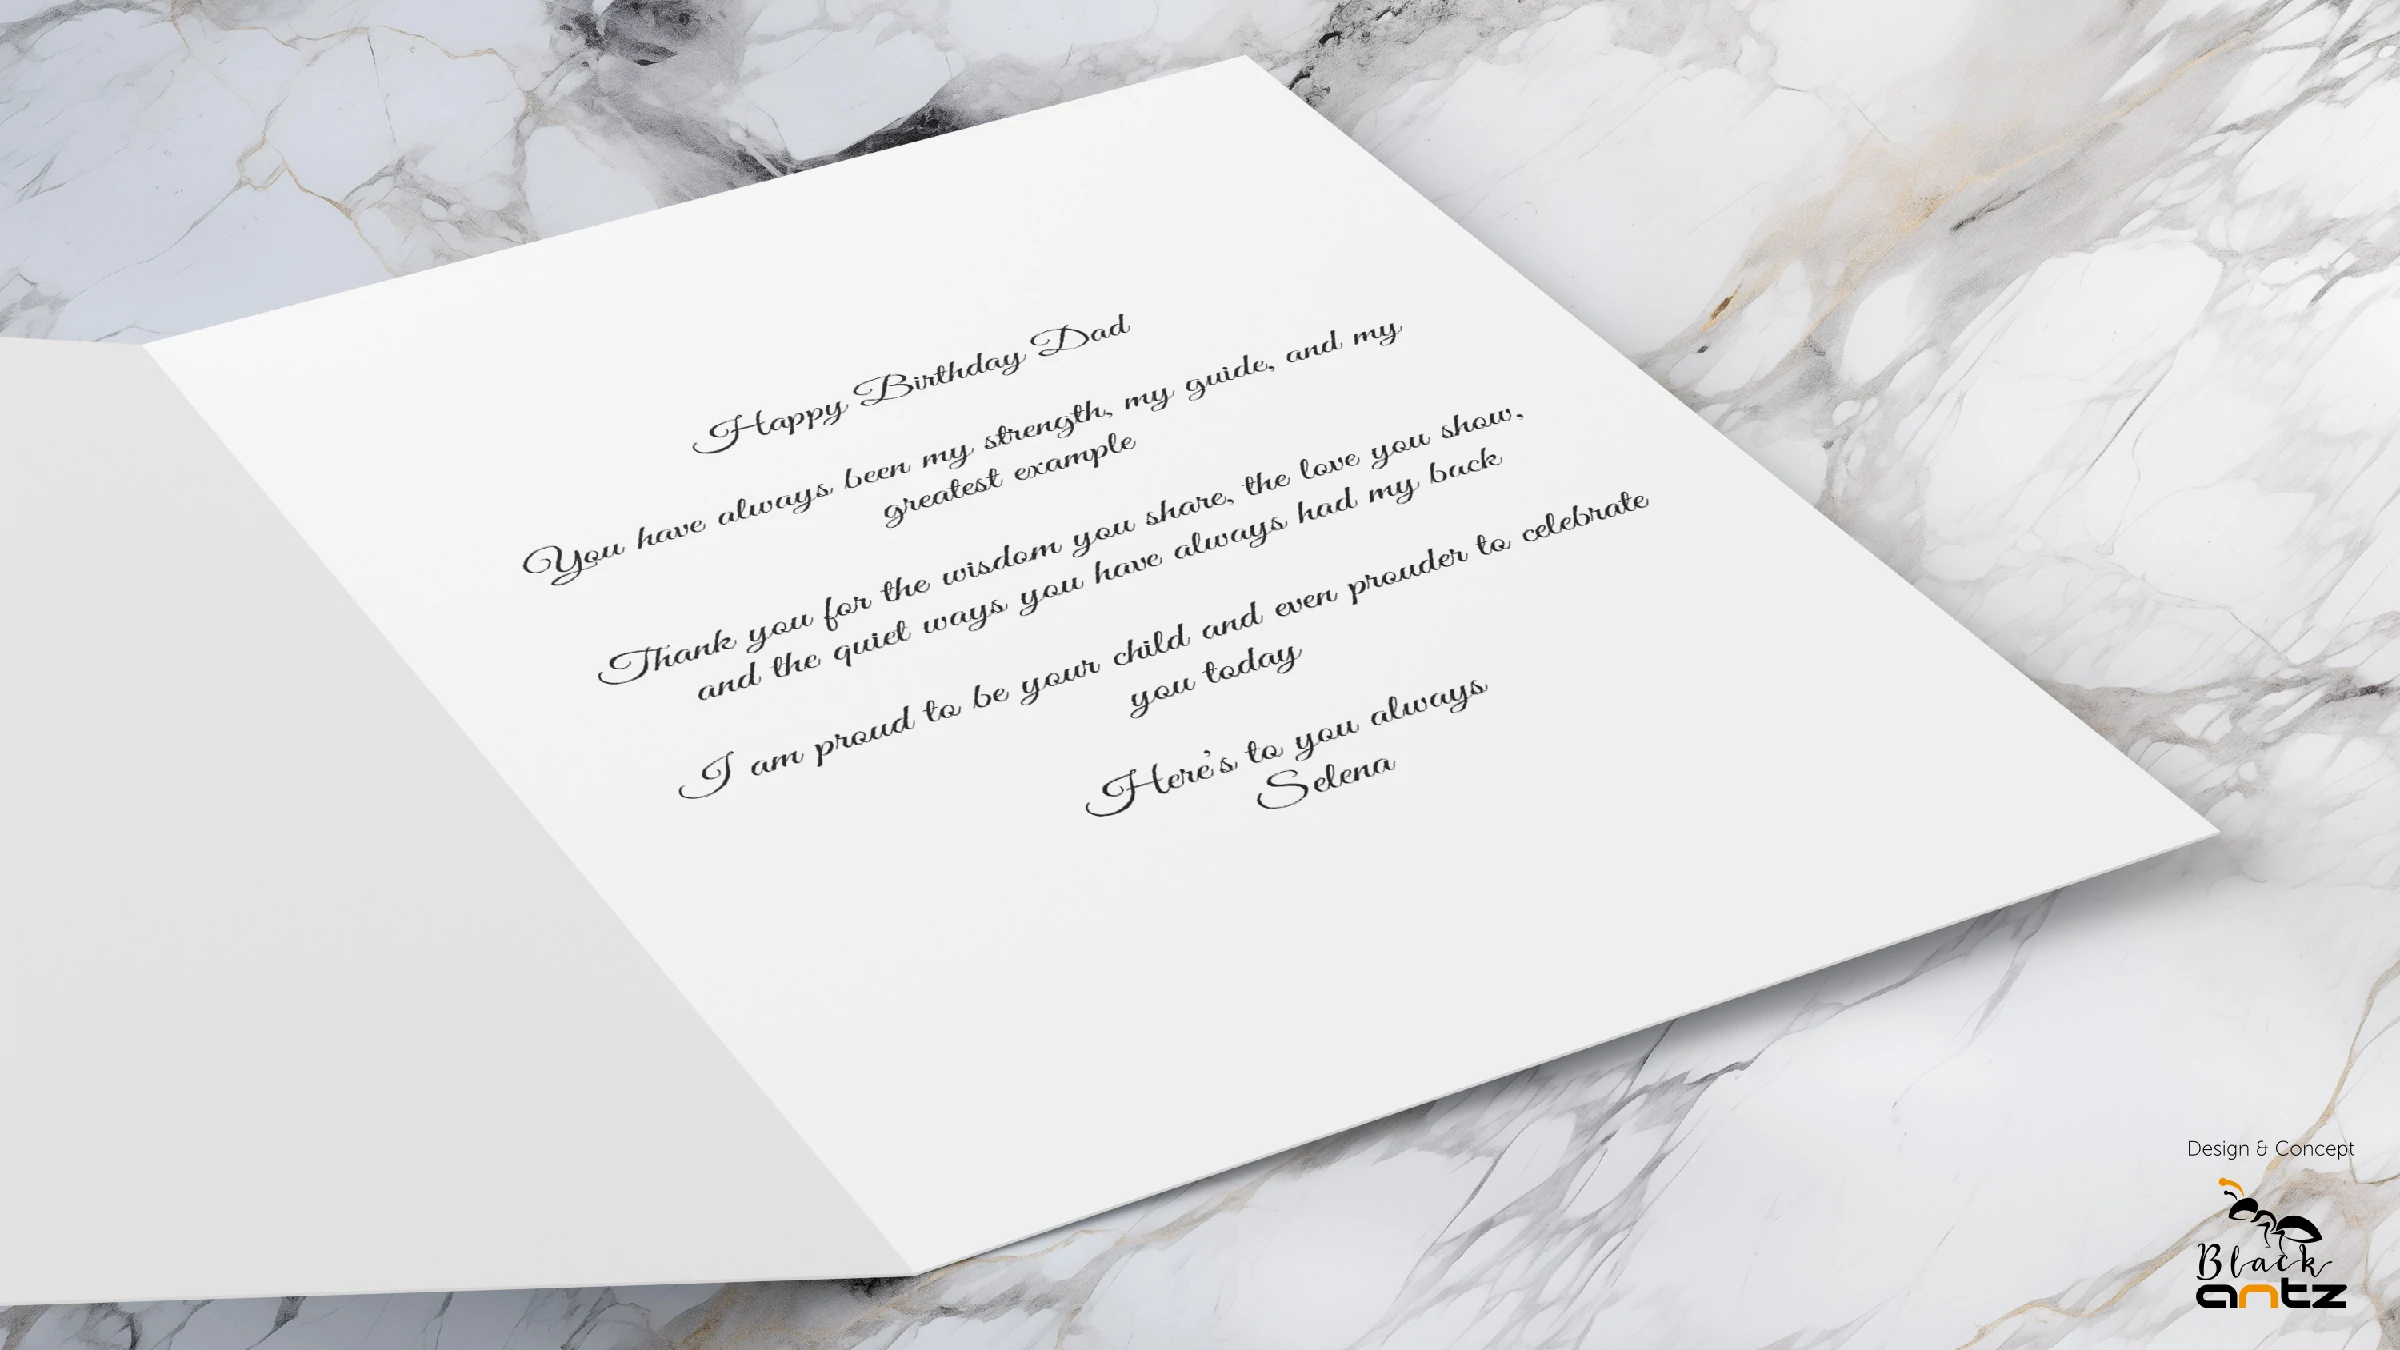 Happy Birthday Dad
You have always been my strength, my guide, and my
greatest example
Thank you for the wisdom you share, the love you show,
and the quiet ways you have always had my back
I am proud to be your child and even prouder to celebrate
you today
Here's to you always
Selena
Design & Concept
Black
antz